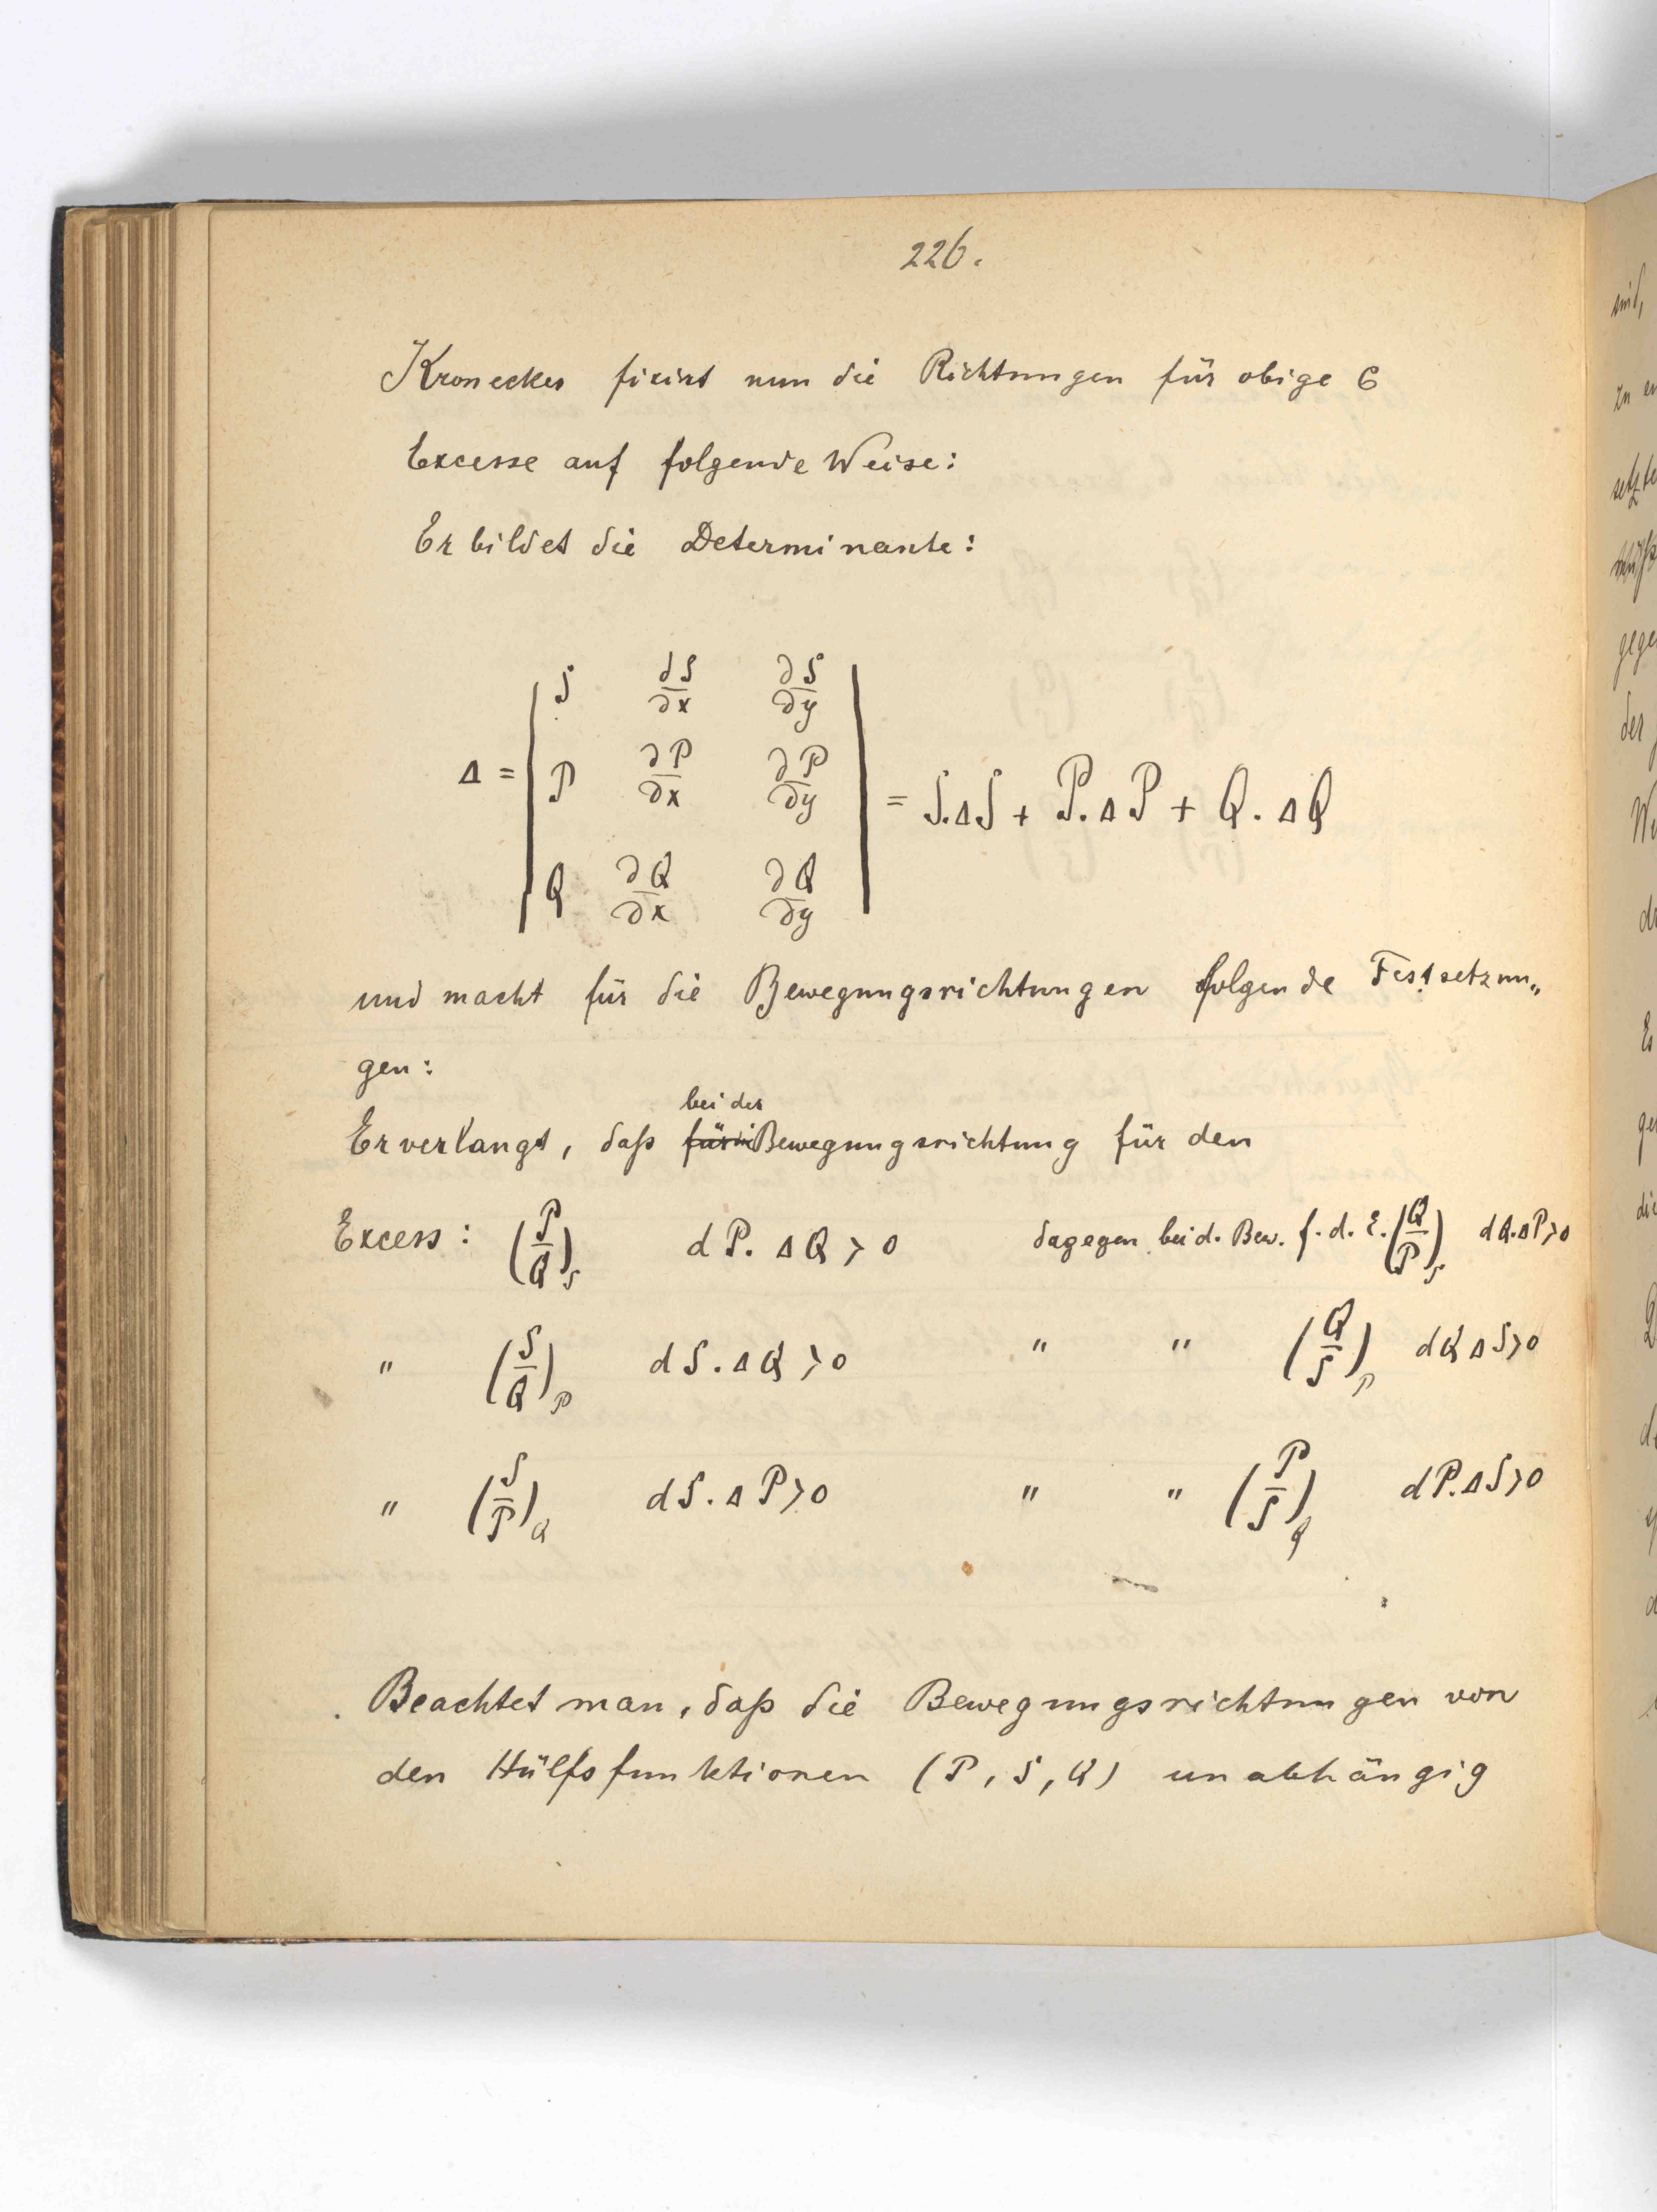 226.
Kronecker fixirt nun die Richtungen für obige 6
Excesse auf folgende Weise:
Er bildet die Determinante:
Δ = | S ∂S/∂x ∂S/∂y |
| P ∂P/∂x ∂P/∂y | = S.ΔS + P.ΔP + Q.ΔQ
| Q ∂Q/∂x ∂Q/∂y |
und macht für die Bewegungsrichtungen folgende Festsetzun„
gen:
bei der
Er verlangt, daß Bewegungsrichtung für den
Excess: (P/Q)_S dP. ΔQ > 0 dagegen bei d. Bew. f. d. E. (Q/P)_S dQ.ΔP>0
" (S/Q)_P dS.ΔQ >0 " " (Q/S)_P dQ ΔS>0
" (S/P)_Q dS.ΔP>0 " " (P/S)_Q dP.ΔS>0
Beachtet man, daß die Bewegungsrichtungen von
den Hülfsfunktionen (P, S, Q) unabhängig